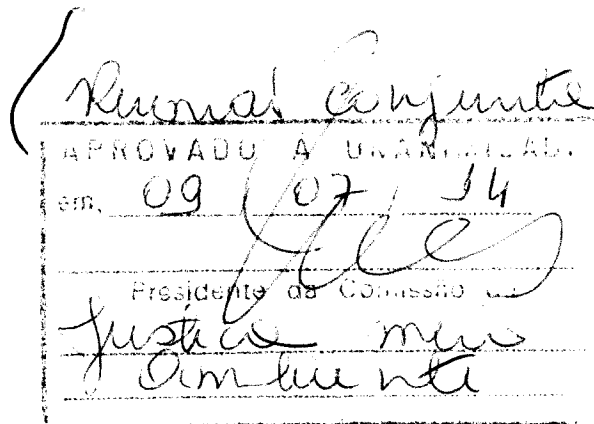 Reunião Conjunta
APROVADO A UNANIMIDAD.
em, 09 / 07 / 14
Presidente da Comissão de
Justica meio
Ambiente